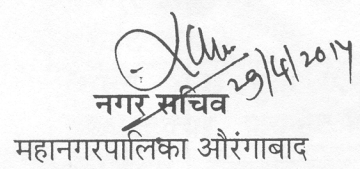 29/4/2014
नगर सचिव
महानगरपालिका औरंगाबाद